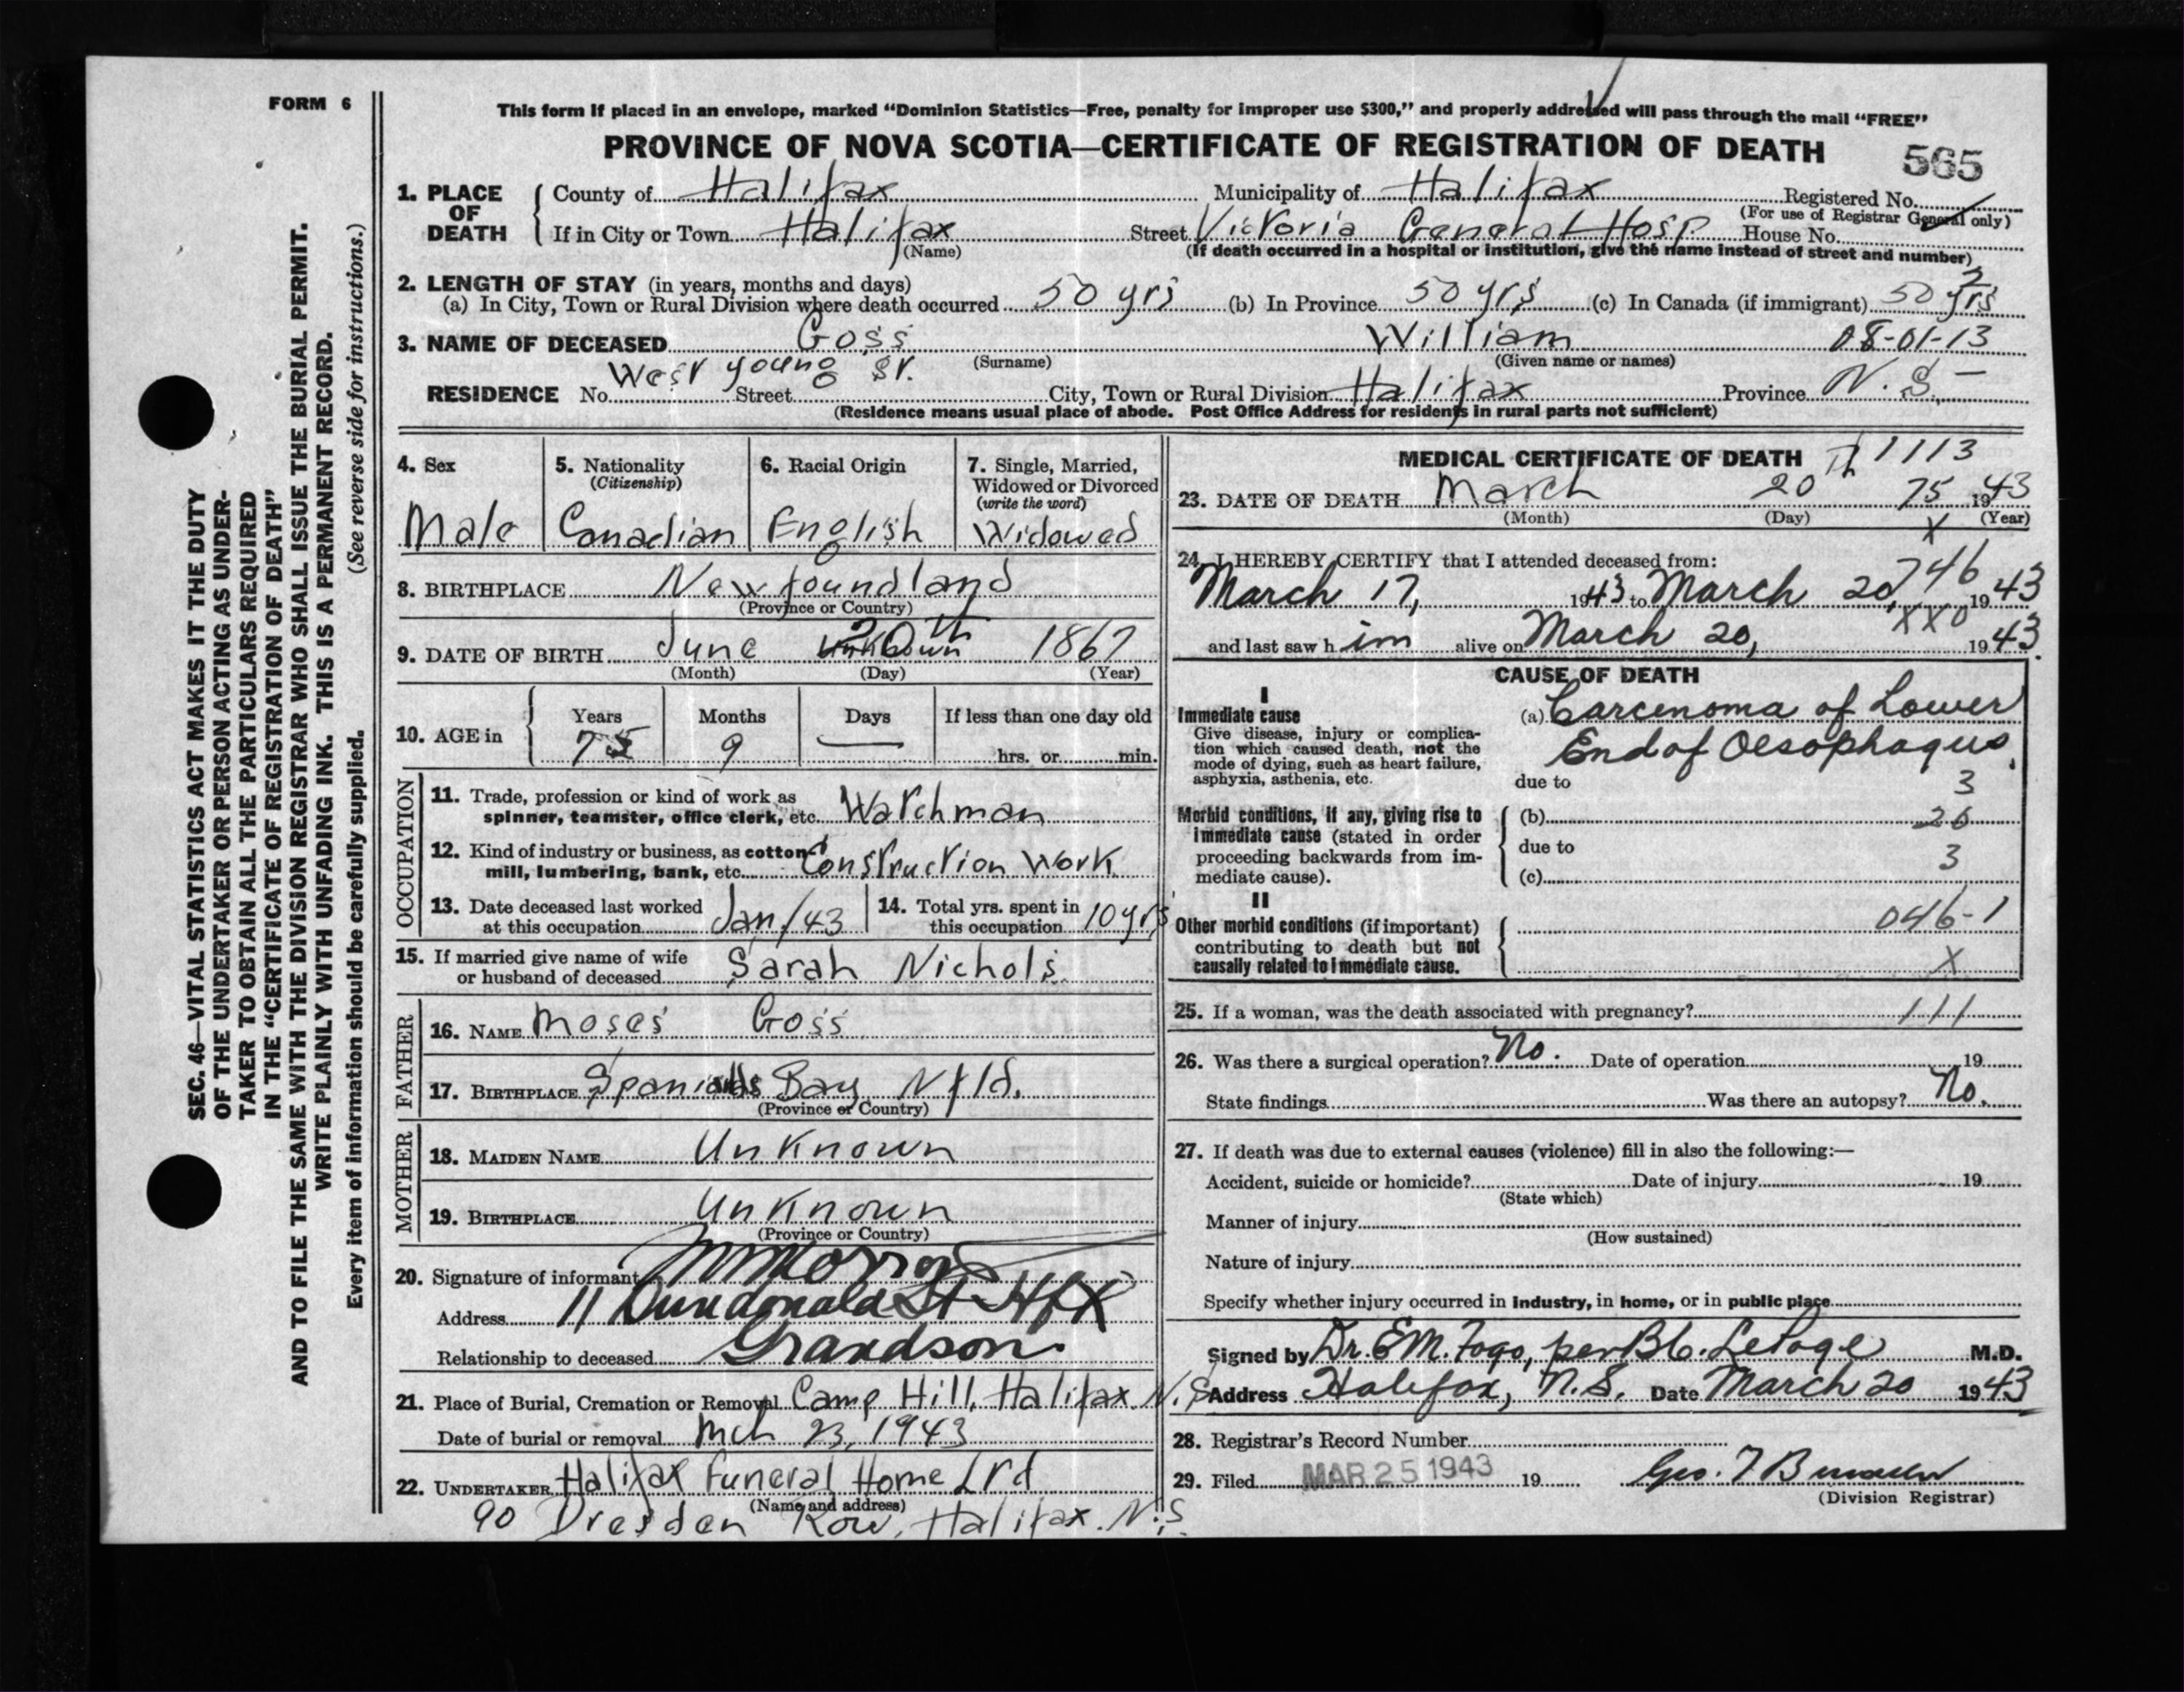 FORM 6
SEC. 46—VITAL STATISTICS ACT MAKES IT THE DUTY
OF THE UNDERTAKER OR PERSON ACTING AS UNDER-
TAKER TO OBTAIN ALL THE PARTICULARS REQUIRED
IN THE "CERTIFICATE OF REGISTRATION OF DEATH"
AND TO FILE THE SAME WITH THE DIVISION REGISTRAR WHO SHALL ISSUE THE BURIAL PERMIT.
WRITE PLAINLY WITH UNFADING INK. THIS IS A PERMANENT RECORD.
Every item of information should be carefully supplied. (See reverse side for instructions.)
This form if placed in an envelope, marked "Dominion Statistics—Free, penalty for improper use $300," and properly addressed will pass through the mail "FREE"
PROVINCE OF NOVA SCOTIA—CERTIFICATE OF REGISTRATION OF DEATH 565
1. PLACE OF DEATH County of Halifax Municipality of Halifax Registered No.
(For use of Registrar General only)
If in City or Town Halifax Street Victoria General Hosp House No.
(Name) (If death occurred in a hospital or institution, give the name instead of street and number)
2. LENGTH OF STAY (in years, months and days)
(a) In City, Town or Rural Division where death occurred 50 yrs (b) In Province 50 yrs (c) In Canada (if immigrant) 50 yrs
3. NAME OF DECEASED Goss William 08-01-13
(Surname) (Given name or names)
RESIDENCE No. West Young St. Street City, Town or Rural Division Halifax Province N.S.
(Residence means usual place of abode. Post Office Address for residents in rural parts not sufficient)
4. Sex 5. Nationality 6. Racial Origin 7. Single, Married,
(Citizenship) Widowed or Divorced
(write the word)
Male Canadian English Widowed
8. BIRTHPLACE Newfoundland
(Province or Country)
9. DATE OF BIRTH June 20th 1867
(Month) (Day) (Year)
10. AGE in Years Months Days If less than one day old
75 9 — hrs. or min.
OCCUPATION
11. Trade, profession or kind of work as
spinner, teamster, office clerk, etc. Watchman
12. Kind of industry or business, as cotton
mill, lumbering, bank, etc. Construction Work
13. Date deceased last worked
at this occupation Jan/43
14. Total yrs. spent in
this occupation 10 yrs
15. If married give name of wife
or husband of deceased Sarah Nichols
FATHER
16. NAME Moses Goss
17. BIRTHPLACE Spaniards Bay Nfld.
(Province or Country)
MOTHER
18. MAIDEN NAME Unknown
19. BIRTHPLACE Unknown
(Province or Country)
20. Signature of informant
Address 11 Dundonald St Hfx
Relationship to deceased Grandson
21. Place of Burial, Cremation or Removal Camp Hill, Halifax N.S
Date of burial or removal Mch 23, 1943
22. UNDERTAKER Halifax Funeral Home Ltd
(Name and address)
90 Dresden Row, Halifax. N.S
MEDICAL CERTIFICATE OF DEATH 1113
23. DATE OF DEATH March 20 75 1943
(Month) (Day) X (Year)
24. I HEREBY CERTIFY that I attended deceased from:
746
March 17, 1943 to March 20, 1943
XX0
and last saw him alive on March 20, 1943.
CAUSE OF DEATH
I
Immediate cause
Give disease, injury or complica-
tion which caused death, not the
mode of dying, such as heart failure,
asphyxia, asthenia, etc.
(a) Carcinoma of Lower
End of Oesophagus
due to 3
Morbid conditions, if any, giving rise to
immediate cause (stated in order
proceeding backwards from im-
mediate cause).
(b) 26
due to 3
(c)
II
Other morbid conditions (if important)
contributing to death but not
causally related to immediate cause.
046-1
X
25. If a woman, was the death associated with pregnancy? 111
26. Was there a surgical operation? No. Date of operation 19
State findings Was there an autopsy? No.
27. If death was due to external causes (violence) fill in also the following:—
Accident, suicide or homicide? Date of injury 19
(State which)
Manner of injury
(How sustained)
Nature of injury
Specify whether injury occurred in industry, in home, or in public place
Signed by Dr. E.M. Fogo, per LePage M.D.
Address Halifax, N.S. Date March 20 1943
28. Registrar's Record Number
29. Filed MAR 25 1943 19
(Division Registrar)